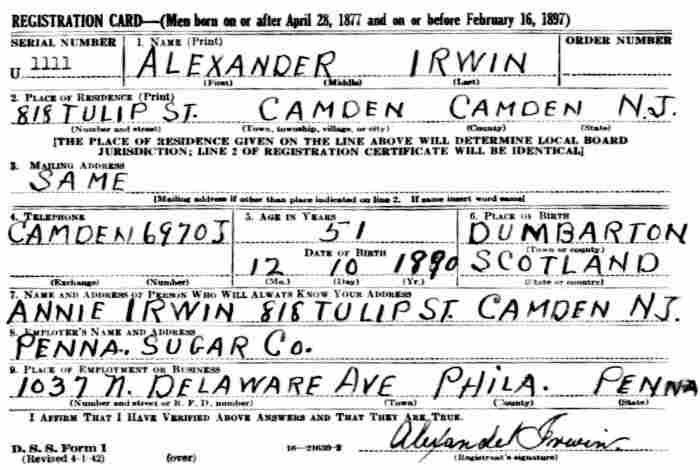 REGISTRATION CARD—(Men born on or after April 28, 1877 and on or before February 16, 1897)
SERIAL NUMBER 1. NAME (Print) ORDER NUMBER
U 1111 ALEXANDER IRWIN
(First) (Middle) (Last)
2. PLACE OF RESIDENCE (Print)
818 TULIP ST. CAMDEN CAMDEN N.J.
(Number and street) (Town, township, village, or city) (County) (State)
[THE PLACE OF RESIDENCE GIVEN ON THE LINE ABOVE WILL DETERMINE LOCAL BOARD
JURISDICTION; LINE 2 OF REGISTRATION CERTIFICATE WILL BE IDENTICAL]
3. MAILING ADDRESS
SAME
[Mailing address if other than place indicated on line 2. If same insert word same]
4. TELEPHONE 5. AGE IN YEARS 6. PLACE OF BIRTH
CAMDEN 6970J 51 DUMBARTON
DATE OF BIRTH (Town or county)
12 10 1890 SCOTLAND
(Exchange) (Number) (Mo.) (Day) (Yr.) (State or country)
7. NAME AND ADDRESS OF PERSON WHO WILL ALWAYS KNOW YOUR ADDRESS
ANNIE IRWIN 818 TULIP ST. CAMDEN N.J.
8. EMPLOYER'S NAME AND ADDRESS
PENNA. SUGAR CO.
9. PLACE OF EMPLOYMENT OR BUSINESS
1037 N. DELAWARE AVE PHILA. PENNA
(Number and street or R. F. D. number) (Town) (County) (State)
I AFFIRM THAT I HAVE VERIFIED ABOVE ANSWERS AND THAT THEY ARE TRUE.
D. S. S. Form 1 16—21630-2 Alexander Irwin
(Revised 4-1-42) (over) (Registrant's signature)